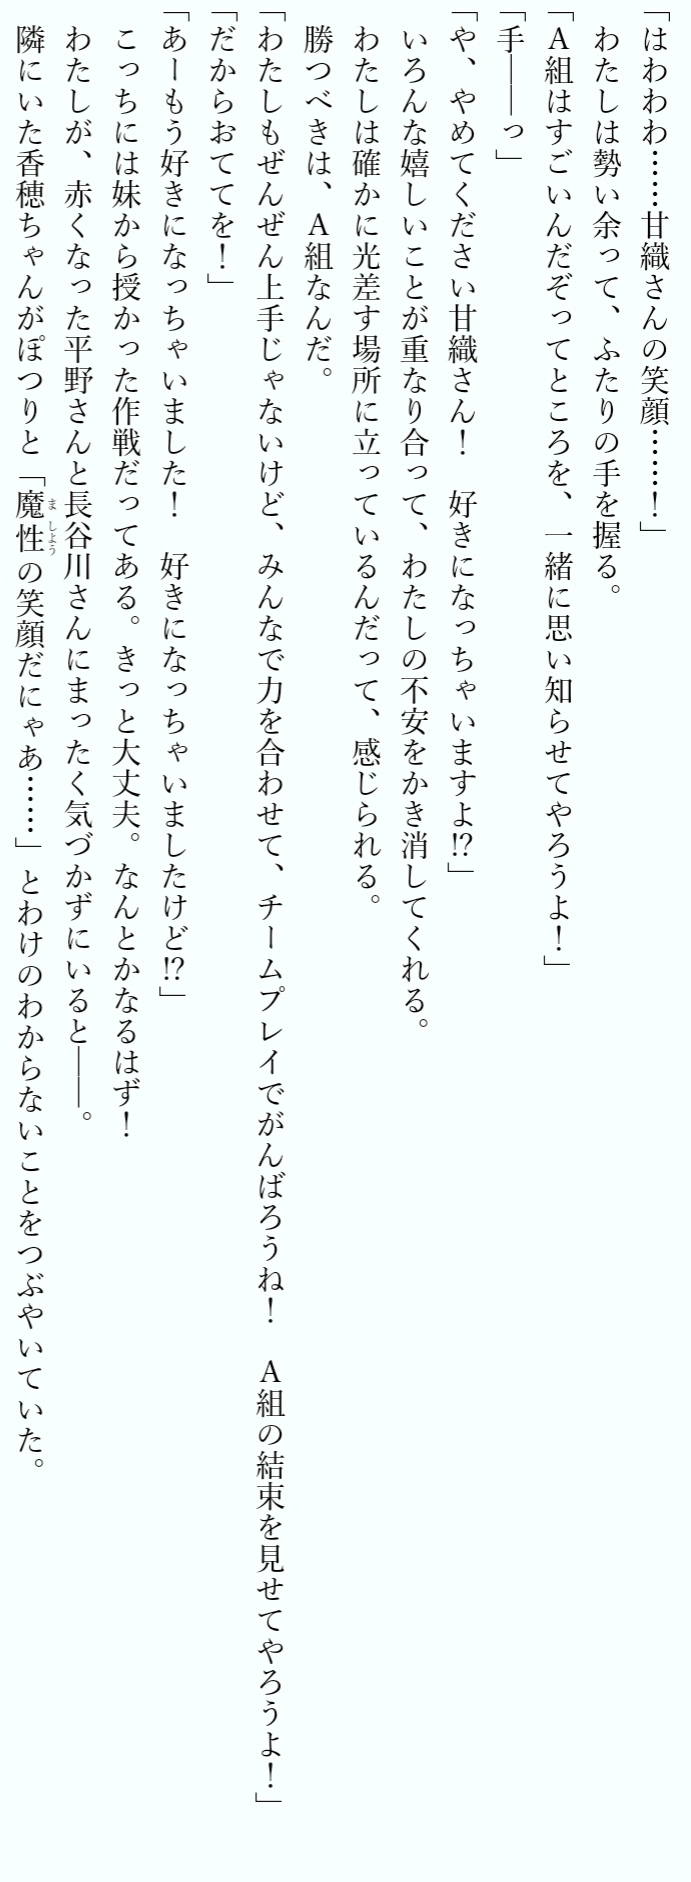 「はわわわ……甘織さんの笑顔……！」
わたしは勢い余って、ふたりの手を握る。
「Ａ組はすごいんだぞってところを、一緒に思い知らせてやろうよ！」
「手――っ」
「や、やめてください甘織さん！　好きになっちゃいますよ⁉」
いろんな嬉しいことが重なり合って、わたしの不安をかき消してくれる。
わたしは確かに光差す場所に立っているんだって、感じられる。
勝つべきは、Ａ組なんだ。
「わたしもぜんぜん上手じゃないけど、みんなで力を合わせて、チームプレイでがんばろうね！　Ａ組の結束を見せてやろうよ！」
「だからおててを！」
「あーもう好きになっちゃいました！　好きになっちゃいましたけど⁉」
こっちには妹から授かった作戦だってある。きっと大丈夫。なんとかなるはず！
わたしが、赤くなった平野さんと長谷川さんにまったく気づかずにいると――。
隣にいた香穂ちゃんがぽつりと「魔性の笑顔だにゃあ……」とわけのわからないことをつぶやいていた。